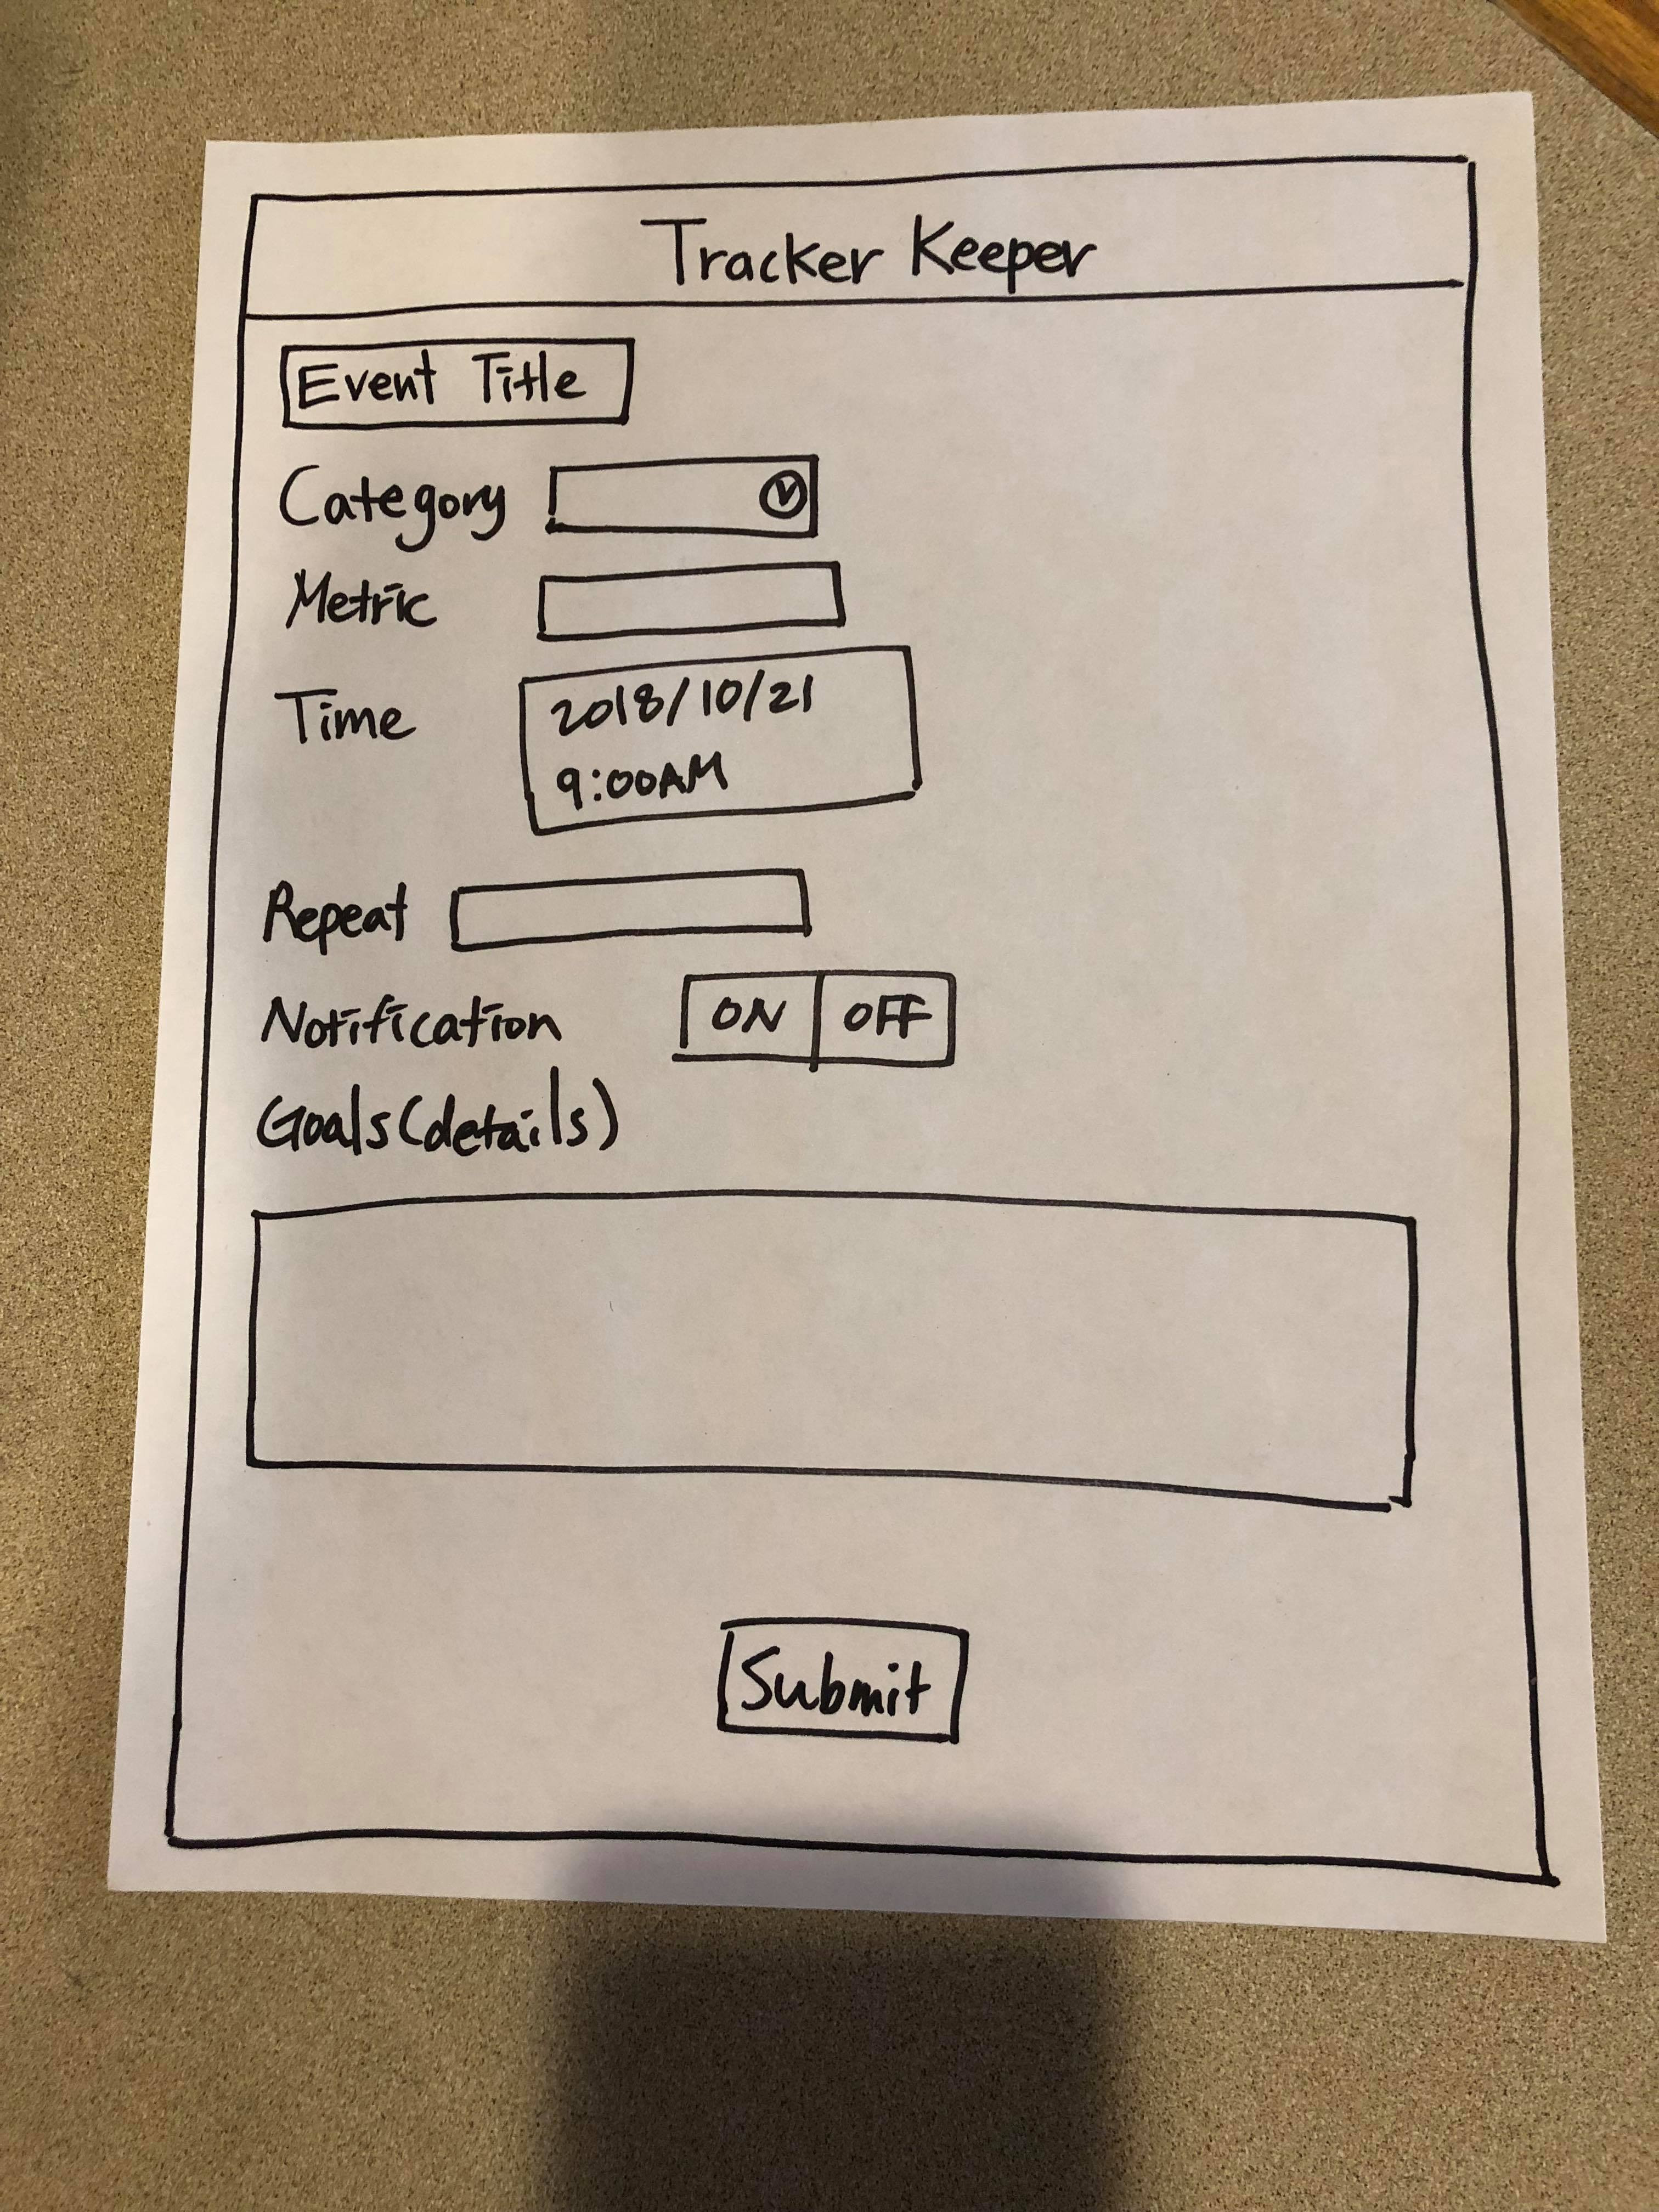 Tracker Keeper
Event Title
Category
Metric
Time
2018/10/21
9:00AM
Repeat
Notification ON OFF
Goals(details)
Submit